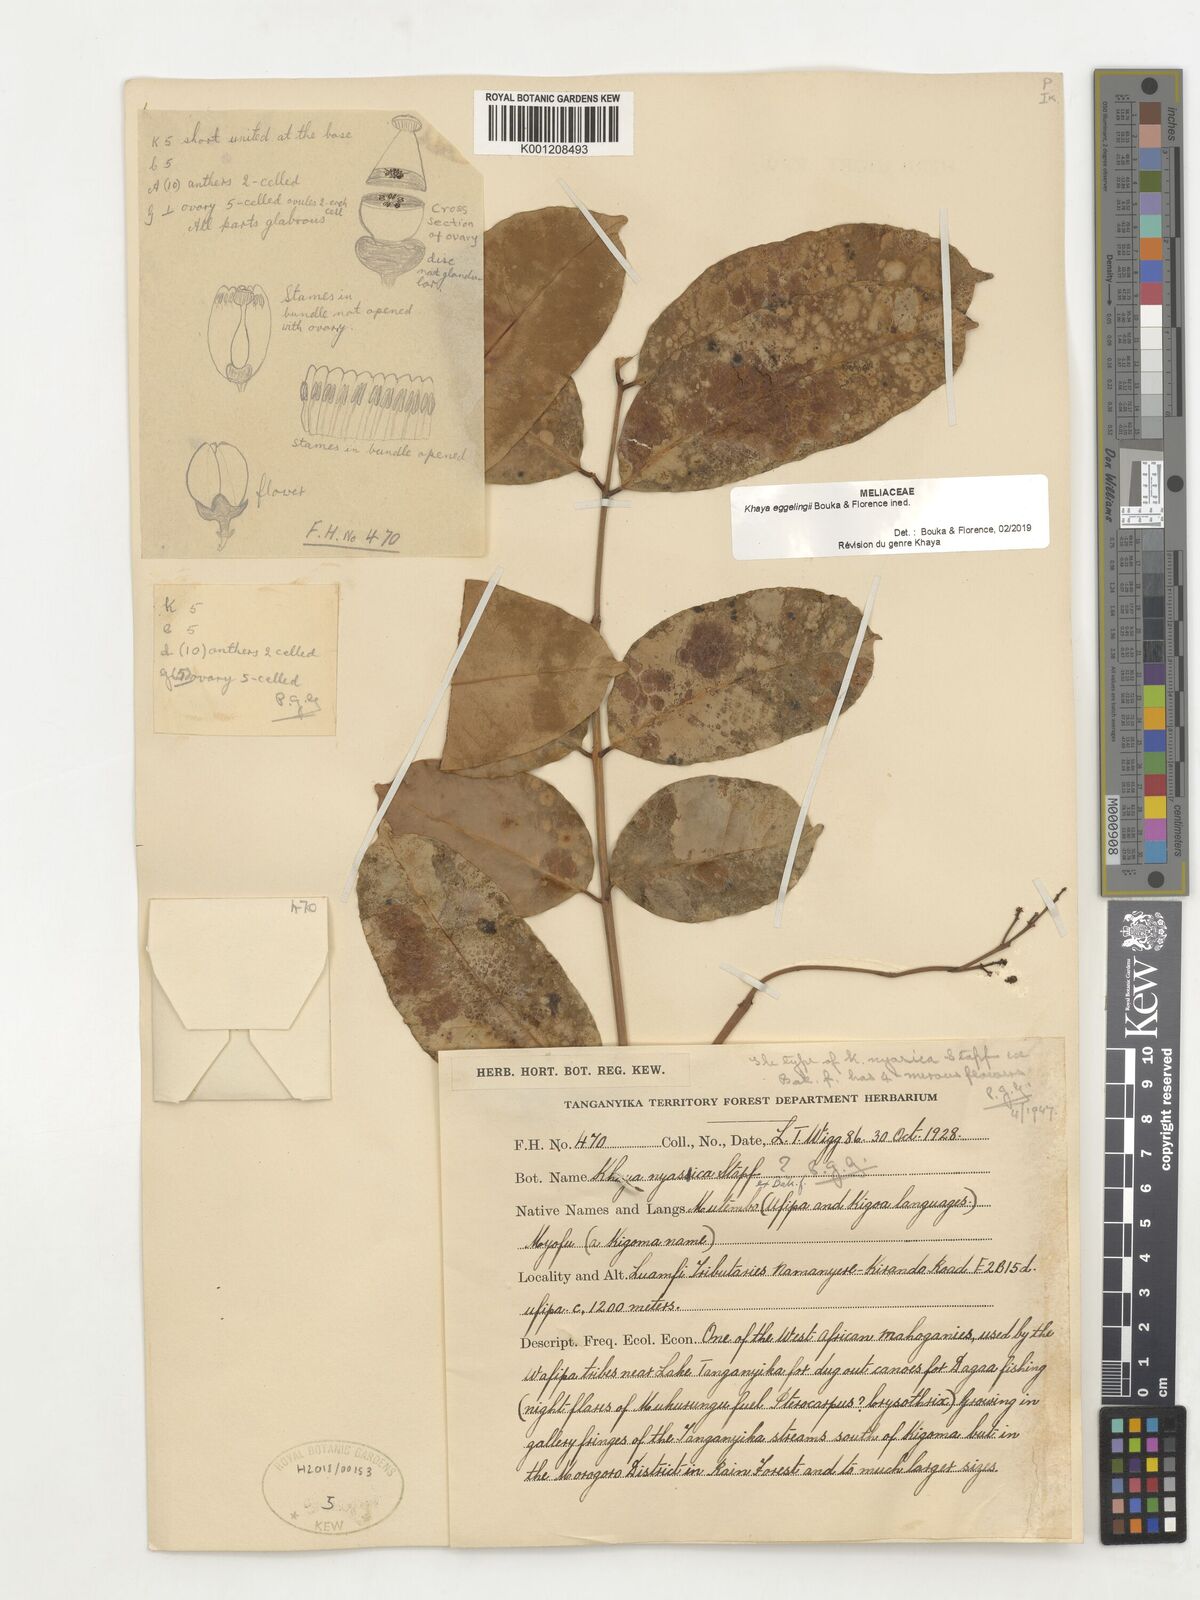 ROYAL BOTANIC GARDENS KEW
K001208493
P
IK.
K 5 short united at the base
C 5
A (10) anthers 2-celled
G ⊥ ovary 5-celled ovules 2-each cell
All parts glabrous
Cross
section
of ovary
disc
not glandu-
lar.
Stames in
bundle not opened
with ovary.
Stames in bundle opened
flower
F.H. No 470
MELIACEAE
Khaya eggelingii Bouka & Florence ined.
Det. : Bouka & Florence, 02/2019
Révision du genre Khaya
K 5
C 5
(10) anthers 2 celled
ovary 5-celled
470
HERB. HORT. BOT. REG. KEW.
The type of K. nyasica Stapf ex
Bak. f. has 4-merous flowers
P.J.G.
4/1947.
TANGANYIKA TERRITORY FOREST DEPARTMENT HERBARIUM
F.H. No. 470 Coll., No., Date, L.T. Wigg 86. 30 Oct. 1928.
Bot. Name Khaya nyasica Stapf ?
ex Bak. f.
Native Names and Langs. (Ufipa and Kigoa languages.)
Myofu (a Kigoma name)
Locality and Alt. Luamfi Tributaries Namanyere-Kirando Road F2B15d.
Ufipa c. 1200 meters.
Descript. Freq. Ecol. Econ. One of the West African mahoganies, used by the
Wafipa tribes near Lake Tanganyika for dug out canoes for Dagaa fishing
(night flares of Mukurungu fuel Pterocarpus? Chrysothrix) Growing in
gallery fringes of the Tanganyika streams south of Kigoma but in
the Morogoro District in Rain Forest and to much larger sizes.
ROYAL BOTANIC GARDENS
H2011/00153
5
KEW
inches
centimeters
Don Williams
M000908
Royal Botanic Gardens
Kew
10
9
8
7
6
5
4
3
2
1
0
cm